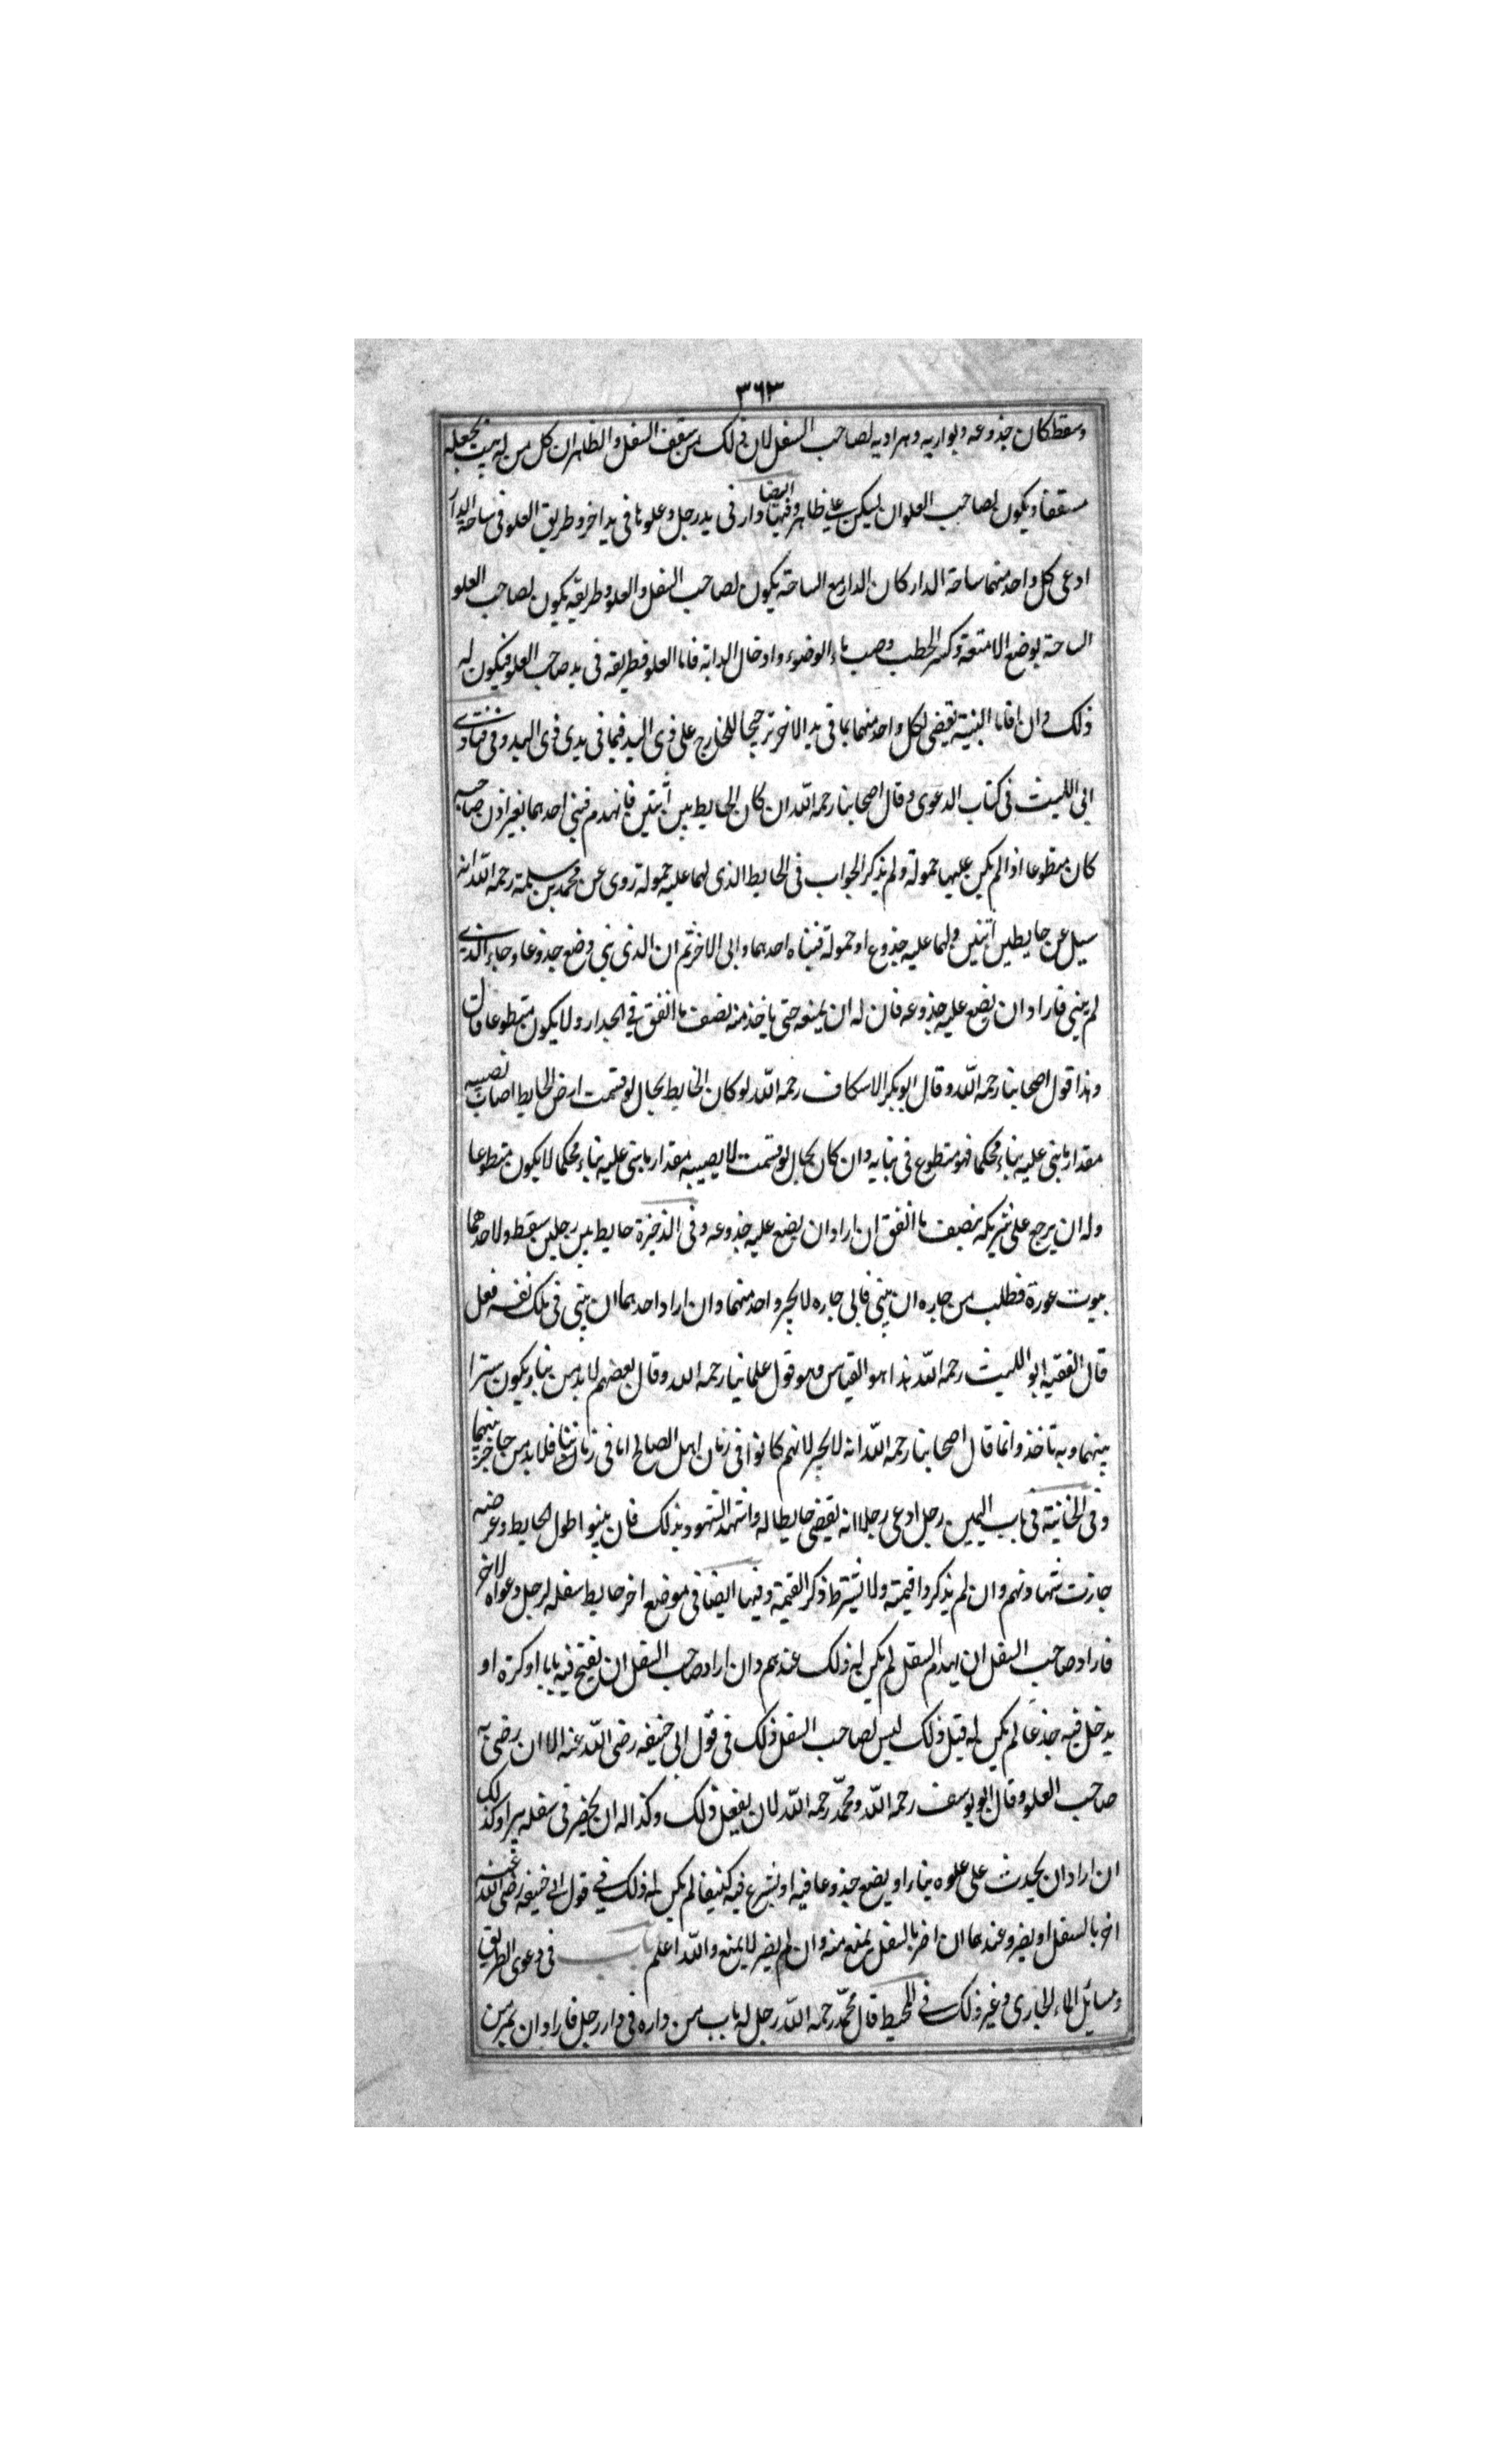 ٣٦٣
وسقط كان جذوعه وبواريه وهراديه لصاحب السفل لان ذلك من سقف السفل والظاهر ان كل من له بيت يجعله
مسقفا ويكون لصاحب العلو ان يسكن على ظاهره وفيها ايضا دار فى يد رجل وعلوها فى يد اخر وطريق العلو فى ساحة الدار
ادعى كل واحد منهما ساحة الدار كان الدار مع الساحة يكون لصاحب السفل والعلو وطريقه يكون لصاحب العلو
الساحة بوضع الامتعة وكسر الحطب وصب ماء الوضوء وادخال الدابة فاما العلو فطريقه فى يد صاحب العلو فيكون له
ذلك وان اقاما البينة يقضى لكل واحد منهما بما فى يد الاخر ترجيحا للخارج على ذى اليد فيما فى يدى ذى اليد وفى فتاوى
ابى الليث فى كتاب الدعوى وقال اصحابنا رحمه الله ان كان الحايط بين اثنين فانهدم فبنى احدهما بغير اذن صاحبه
كان متطوعا اذا لم يكن عليها حمولة ولم يذكر الجواب فى الحايط الذى لهما عليه حمولة روى عن محمد بن سلمة رحمه الله انه
سيل عن حايط بين اثنين ولهما عليه جذوع او حمولة فبناه احدهما وابى الاخر ثم ان الذى بنى وضع جذوعا وجاء الذى
لم يبنى فاراد ان يضع عليه جذوعه فان له ان يمنعه حتى ياخذ منه نصف ما انفق في الجدار ولا يكون متطوعا قال
وهذا قول اصحابنا رحمه الله وقال ابو بكر الاسكاف رحمه الله لو كان الحايط بحال لو قسمت ارض الحايط اصاب نصيبه
مقدار ما بنى عليه بناء محكما فهو متطوع فى بنايه وان كان بحال لو قسمت لا يصيبه مقدار ما بنى عليه بناء محكما لا يكون متطوعا
وله ان يرجع على شريكه بنصف ما انفق ان اراد ان يضع عليه جذوعه وفى الذخيرة حايط بين رجلين سقط ولاحدهما
بيوت عورة فطلب من جاره ان يبنى فابى جاره لا يجبر واحد منهما وان اراد احدهما ان يبنى فى ملك نفسه فعل
قال الفقيه ابو الليث رحمه الله هذا هو القياس وهو قول علمائنا رحمه الله وقال بعضهم لا بد من بناء يكون سترا
بينهما وبه ناخذ وانما قال اصحابنا رحمه الله انه لا يجبر لانهم كانوا فى زمان اهل الصالح اما فى زماننا فلا بد من حاجز بينهما
وفى الخانية فى باب اليمين رجل ادعى رجلا انه يقضى حايطا له واشهد الشهود بذلك فان بينوا طول الحايط وعرضه
جازت شهادتهم وان لم يذكروا قيمته ولا يشترط ذكر القيمة وفيها ايضا فى موضع اخر حايط سفله لرجل وعلوه لاخر
فاراد صاحب السفل ان يهدم السفل لم يكن له ذلك عندهم وان اراد صاحب السفل ان يفتح فيه بابا او كرة او
يدخل فيه جذعا لم يكن له قبل ذلك ليس لصاحب السفل ذلك فى قول ابى حنيفه رضى الله عنه الا ان رضى به
صاحب العلو وقال ابو يوسف رحمه الله ومحمد رحمه الله لان يفعل ذلك وكذا له ان يحفر فى سفله بيرا وكذلك
ان اراد ان يحدث على علوه بناء او يضع جذوعا فيه او يشرع فيه كنيفا لم يكن له ذلك فى قول ابى حنيفه رضى الله عنه
اضر بالسفل او يضر وعندهما ان اضر بالسفل يمنع منه وان لم يضر لا يمنع والله اعلم باب فى دعوى الطريق
ومسائل الماء الجارى وغير ذلك فى المحيط قال محمد رحمه الله رجل له باب من داره فى دار رجل فاراد ان يمر من